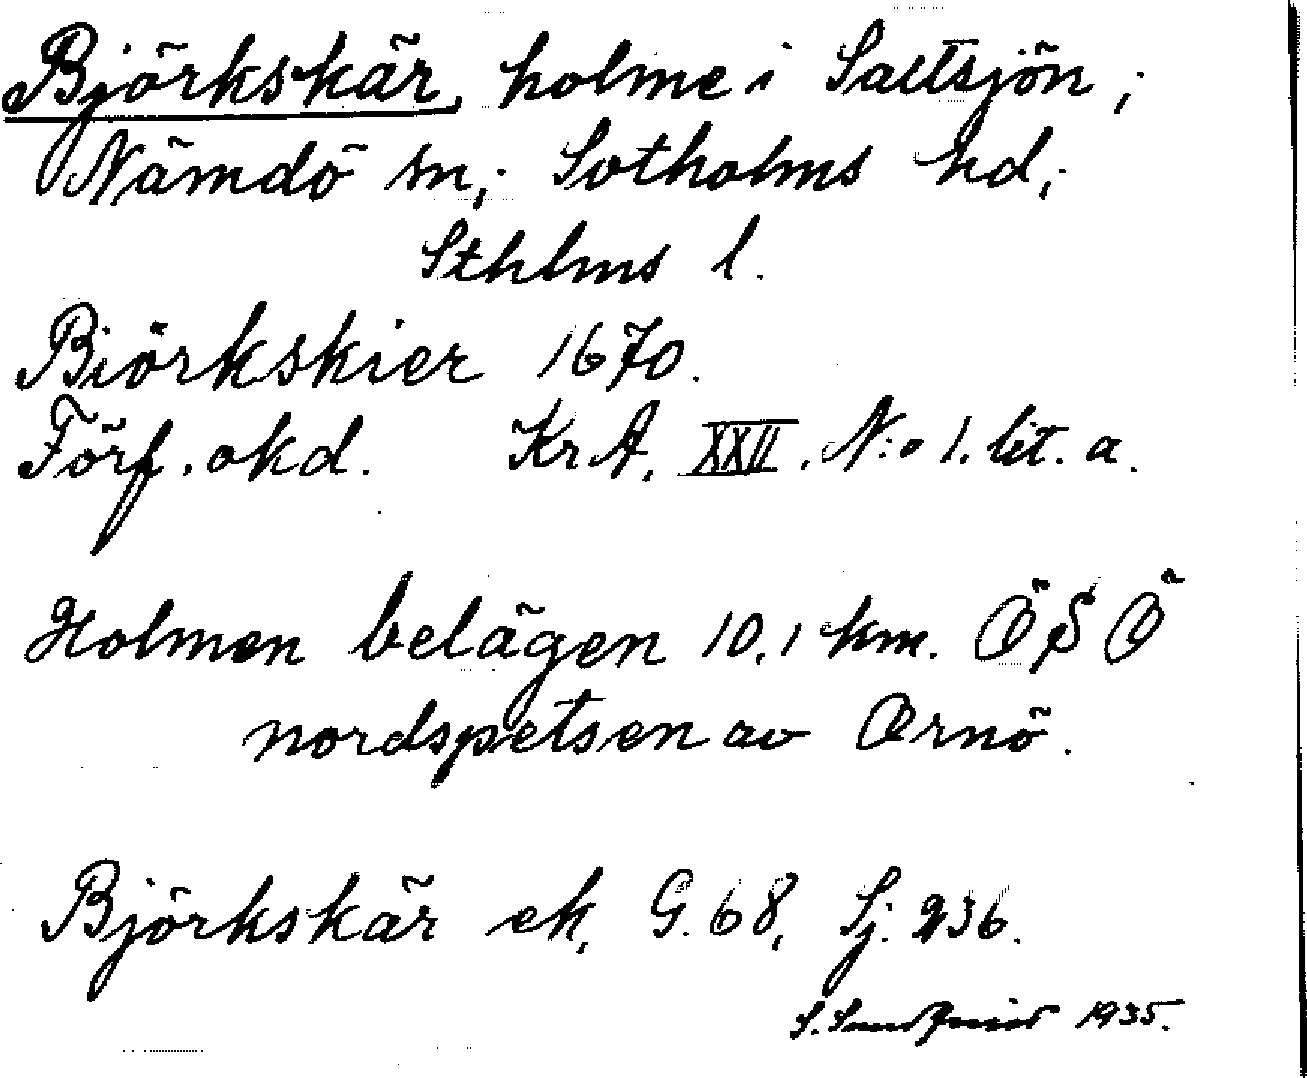 Björkskär, holme i Saltsjön;
Nämdö sn; Sotholms hd;
Sthlms l.
Biörkskier 1670.
Förf. okd. KrA. XXII. N:o 1. lit. a.
Holmen belägen 10,1 km. ÖSÖ
nordspetsen av Ornö.
Björkskär ek, G. 68, Sj. 236.
S. 1935.